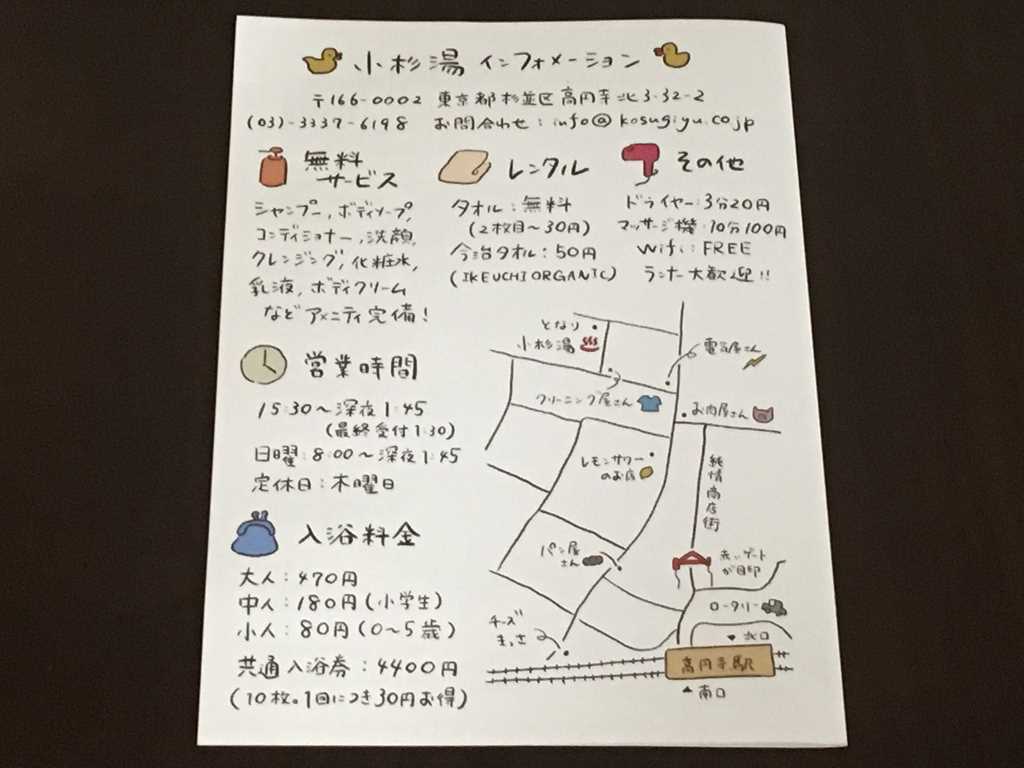 小杉湯 インフォメーション
〒166-0002 東京都杉並区高円寺北3-32-2
(03)-3337-6198 お問合わせ：info@kosugiyu.co.jp
無料
サービス
シャンプー, ボディソープ,
コンディショナー, 洗顔,
クレンジング, 化粧水,
乳液, ボディクリーム
などアメニティ完備！
レンタル
タオル：無料
(2枚目〜30円)
今治タオル：50円
(IKEUCHI ORGANIC)
その他
ドライヤー：3分20円
マッサージ機：10分100円
Wifi：FREE
ランナー大歓迎!!
営業時間
15:30〜深夜1:45
(最終受付1:30)
日曜：8:00〜深夜1:45
定休日：木曜日
入浴料金
大人：470円
中人：180円(小学生)
小人：80円(0〜5歳)
共通入浴券：4400円
(10枚。1回につき30円お得)
となり
小杉湯
電気屋さん
クリーニング屋さん
お肉屋さん
レモンサワー
のお店
純情商店街
パン屋
さん
赤いゲート
が目印
ロータリー
チーズ
北口
高円寺駅
南口